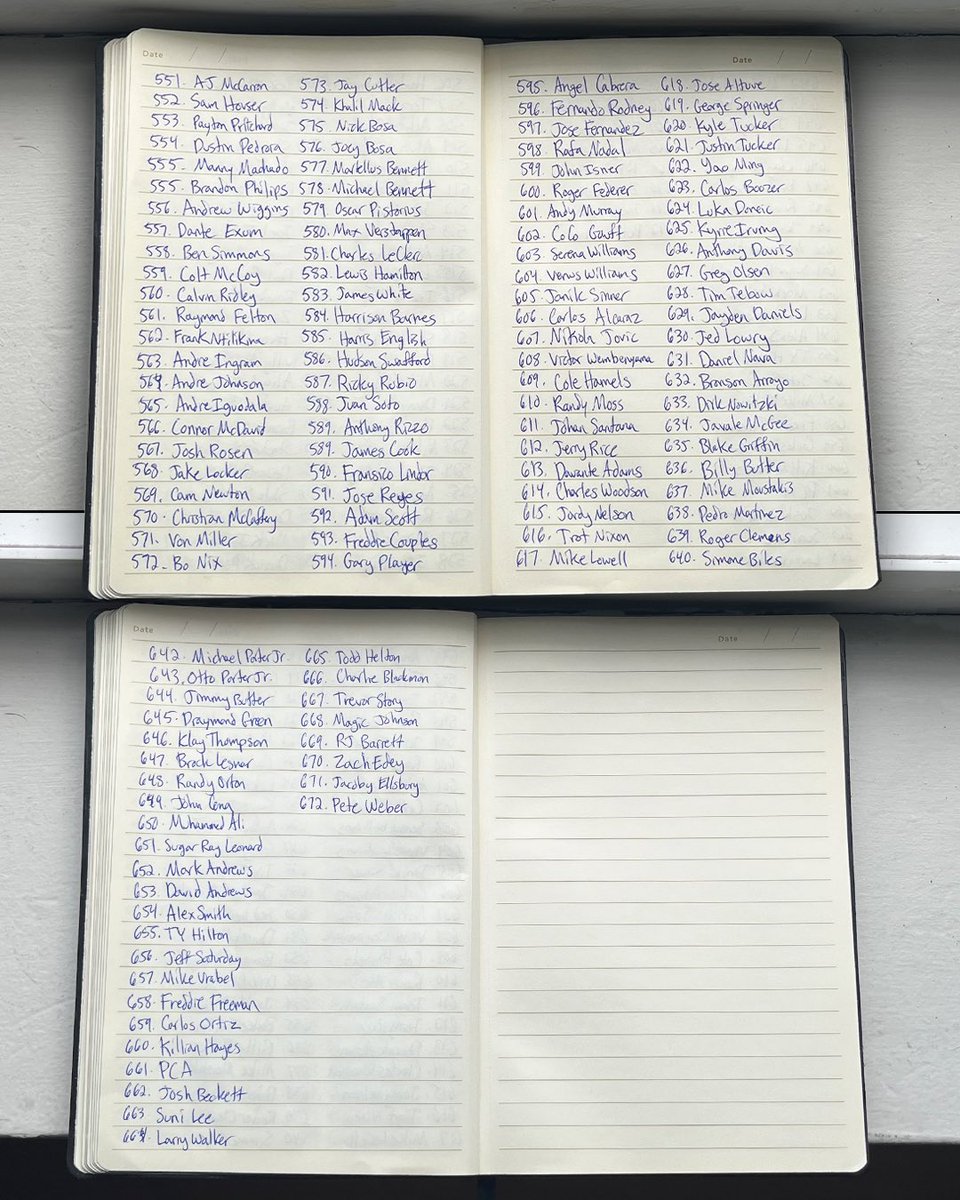 Date / /
551. AJ McCarron
552. Sam Houser
553. Payton Pritchard
554. Dustin Pedroia
555. Manny Machado
555. Brandon Philips
556. Andrew Wiggins
557. Dante Exum
558. Ben Simmons
559. Colt McCoy
560. Calvin Ridley
561. Raymond Felton
562. Frank Ntilikina
563. Andre Ingram
564. Andre Johnson
565. Andre Iguodala
566. Connor McDavid
567. Josh Rosen
568. Jake Locker
569. Cam Newton
570. Christian McCaffrey
571. Von Miller
572. Bo Nix
573. Jay Cutler
574. Khalil Mack
575. Nick Bosa
576. Joey Bosa
577. Martellus Bennett
578. Michael Bennett
579. Oscar Pistorius
580. Max Verstappen
581. Charles LeClerc
582. Lewis Hamilton
583. James White
584. Harrison Barnes
585. Harris English
586. Hudson Swafford
587. Ricky Rubio
588. Juan Soto
589. Anthony Rizzo
589. James Cook
590. Fransico Lindor
591. Jose Reyes
592. Adam Scott
593. Freddie Couples
594. Gary Player
Date / /
595. Angel Cabrera
596. Fernando Rodney
597. Jose Fernandez
598. Rafa Nadal
599. John Isner
600. Roger Federer
601. Andy Murray
602. CoCo Gauff
603. Serena Williams
604. Venus Williams
605. Janik Sinner
606. Carlos Alcaraz
607. Nikola Jovic
608. Victor Wembenyama
609. Cole Hamels
610. Randy Moss
611. Johan Santana
612. Jerry Rice
613. Davante Adams
614. Charles Woodson
615. Jordy Nelson
616. Trot Nixon
617. Mike Lowell
618. Jose Altuve
619. George Springer
620. Kyle Tucker
621. Justin Tucker
622. Yao Ming
623. Carlos Boozer
624. Luka Doncic
625. Kyrie Irving
626. Anthony Davis
627. Greg Olsen
628. Tim Tebow
629. Jayden Daniels
630. Jed Lowry
631. Daniel Nava
632. Bronson Arroyo
633. Dirk Nowitzki
634. Javale McGee
635. Blake Griffin
636. Billy Butler
637. Mike Moustakis
638. Pedro Martinez
639. Roger Clemens
640. Simone Biles
Date / /
642. Michael Porter Jr.
643. Otto Porter Jr.
644. Jimmy Butler
645. Draymond Green
646. Klay Thompson
647. Brock Lesnar
648. Randy Orton
649. John Cena
650. Muhammad Ali
651. Sugar Ray Leonard
652. Mark Andrews
653. David Andrews
654. Alex Smith
655. TY Hilton
656. Jeff Saturday
657. Mike Vrabel
658. Freddie Freeman
659. Carlos Ortiz
660. Killian Hayes
661. PCA
662. Josh Beckett
663 Suni Lee
664. Larry Walker
665. Todd Helton
666. Charlie Blackmon
667. Trevor Story
668. Magic Johnson
669. RJ Barrett
670. Zach Edey
671. Jacoby Ellsbury
672. Pete Weber
Date / /